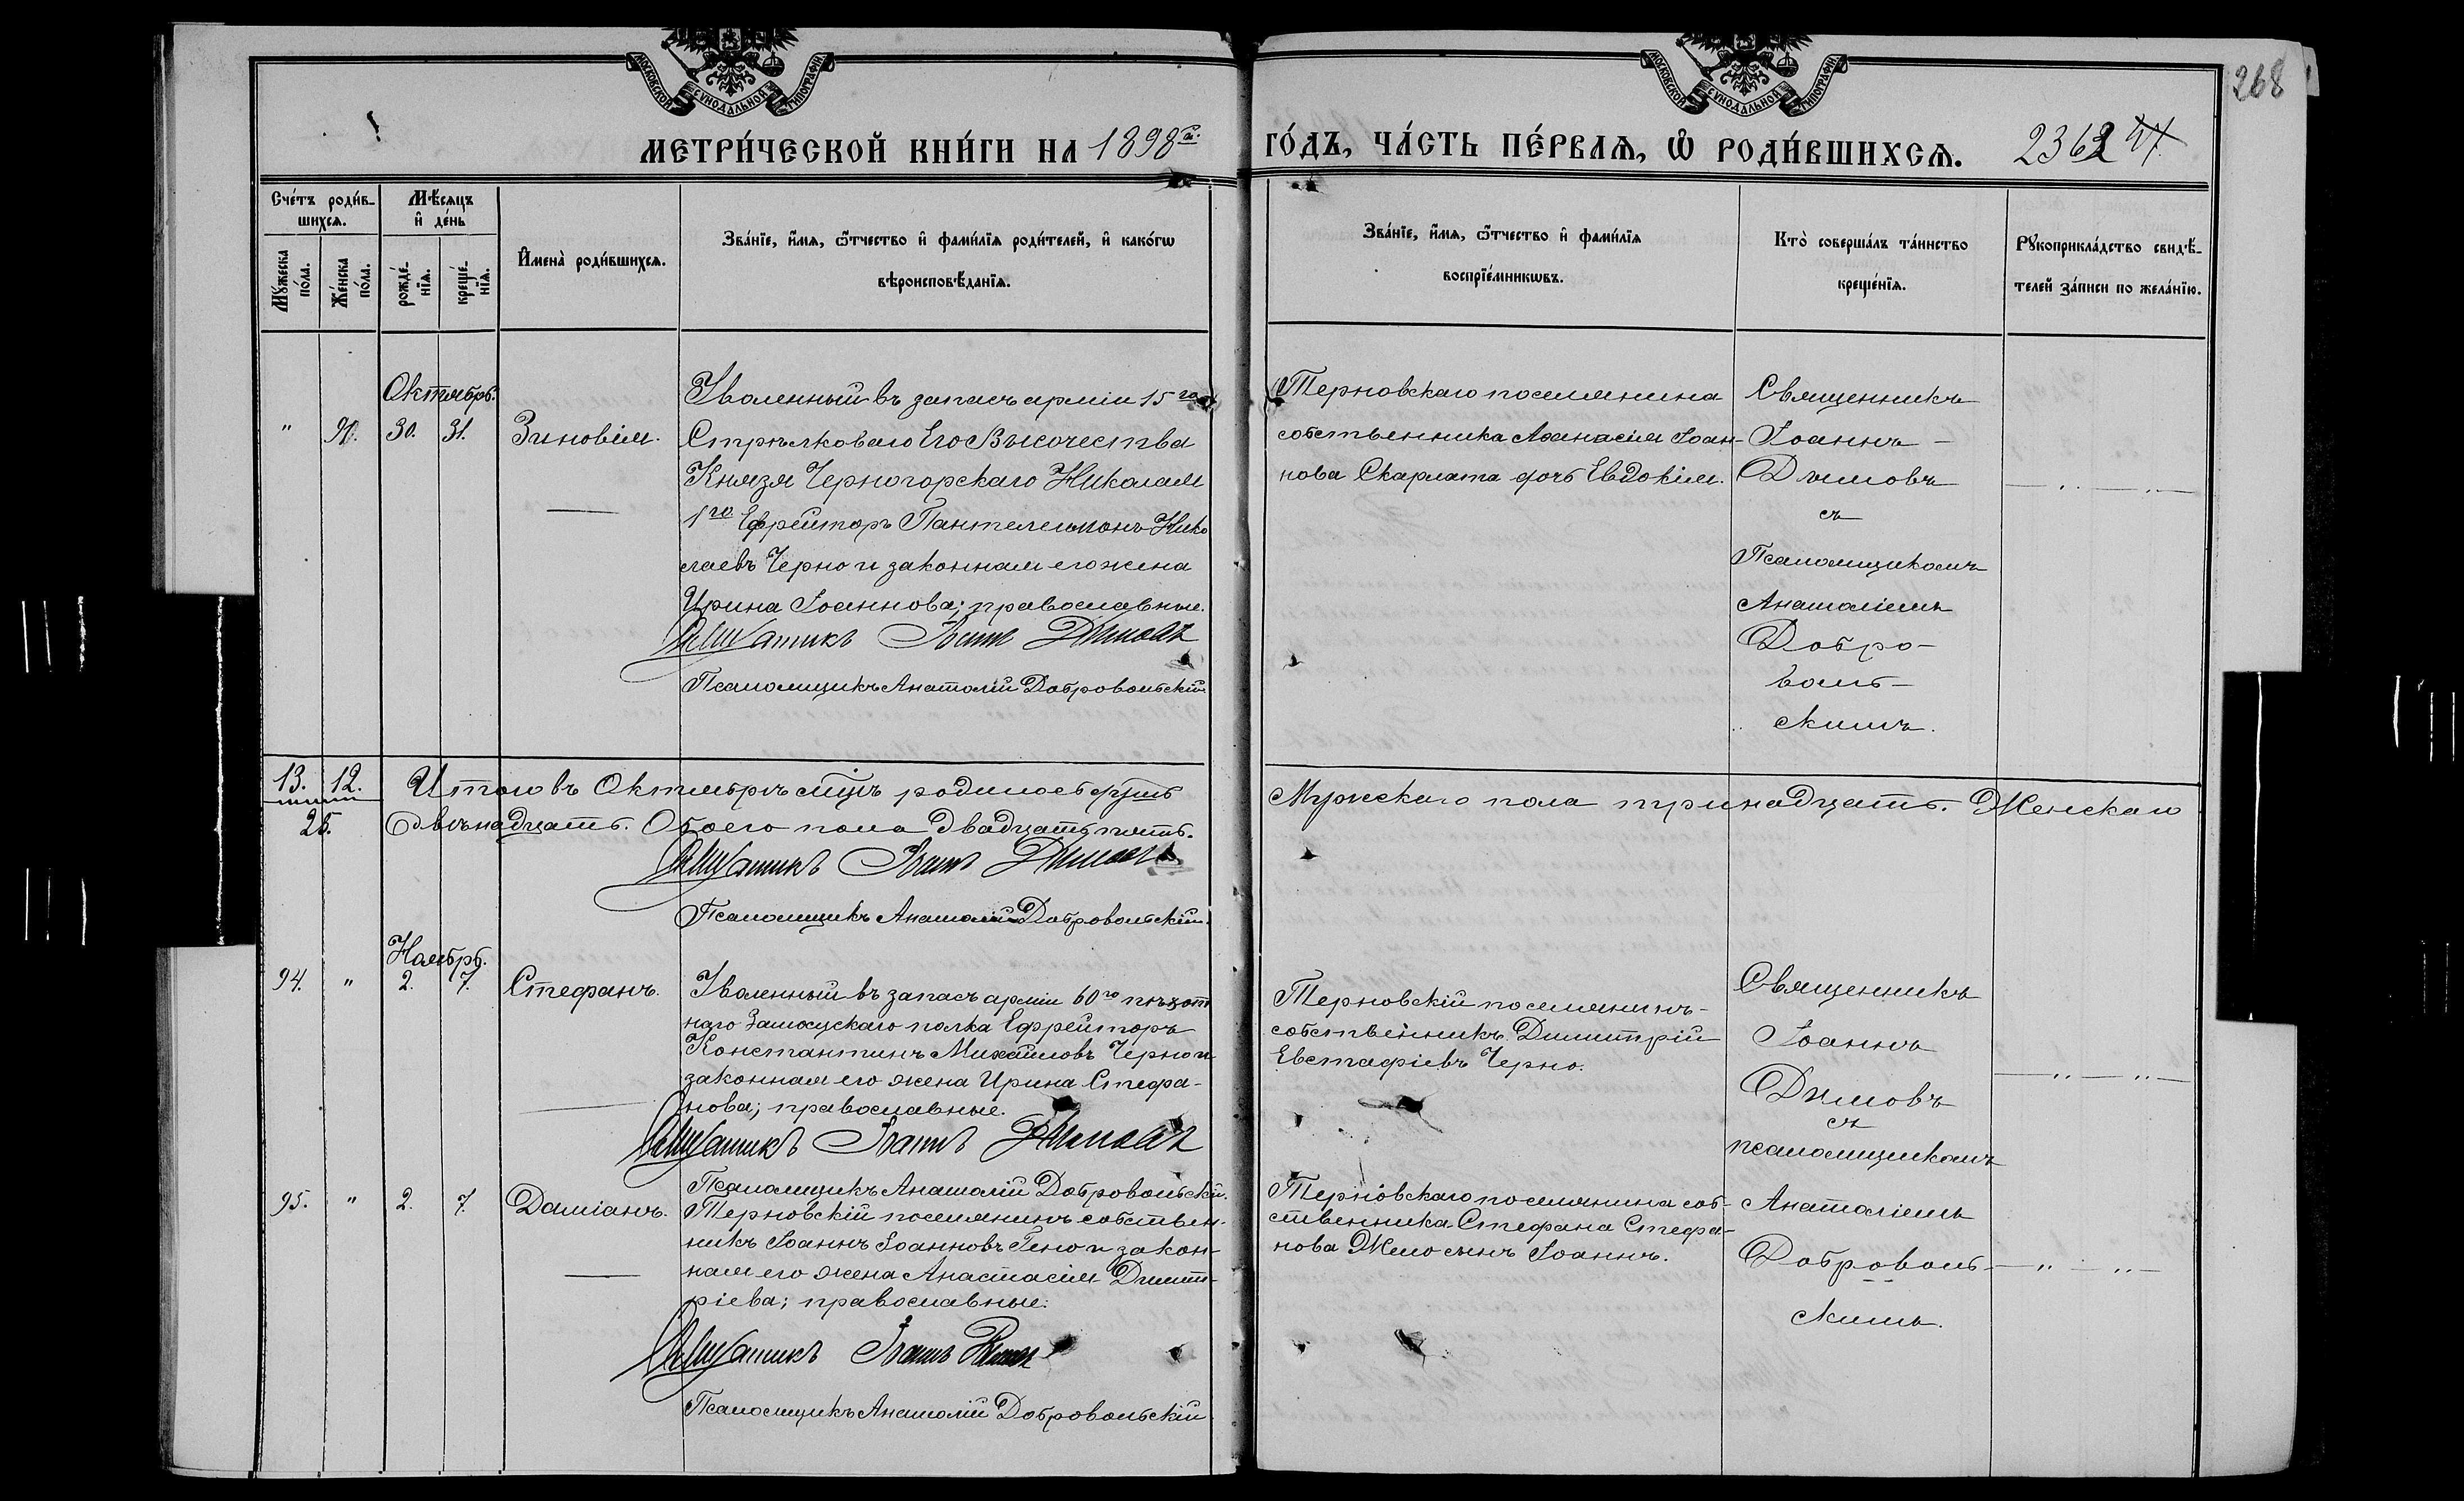 МОСКОВСКОЙ СУНОДАЛЬНОЙ ТИПОГРАФІИ
МОСКОВСКОЙ СУНОДАЛЬНОЙ ТИПОГРАФІИ
268
МЕТРИ́ЧЕСКОЙ КНИ́ГИ НА 1898
ГО́ДЪ, ЧА́СТЬ ПЕ́РВАѦ, Ѡ РОДИ́ВШИХСѦ. 2362
Сче́тъ роди́в-
шихсѧ.
Мѣ́сѧцъ
и де́нь
Мꙋ́жеска по́ла.
Же́нска по́ла.
рожде́-
нїѧ.
креще́-
нїѧ.
И҆мена̀ роди́вшихсѧ.
Зва́нїе, и҆́мѧ, ѻ҆́тчество и҆ фами́лїѧ роди́телей, и҆ како́гѡ
вѣроисповѣ́данїѧ.
Зва́нїе, и҆́мѧ, ѻ҆́тчество и҆ фами́лїѧ
воспрїе́мникѡвъ.
Кто̀ соверша́лъ та́инство
креще́нїѧ.
Рꙋкоприкла́дство свидѣ́-
телей за́писи по жела́нїю.
Октябрь.
" 91. 30. 31. Зиновія.
Уволенный въ запасъ арміи 15го
Стрѣлковаго Его Высочества
Князя Черногорскаго Николая
1го Ефрейторъ Пантелеимонъ Нико
лаевъ Черно и законная его жена
Ирина Іоаннова; православные.
Священникъ Іоаннъ Дымовъ
Псаломщикъ Анатолій Добровольскій
Терновскаго поселянина
собственника Аѳанасія Іоан-
нова Скарлата дочь Евдокія.
Священникъ
Іоаннъ
Дымовъ
съ
Псаломщикомъ
Анатоліемъ
Добро-
воль-
скимъ.
13. 12.
25.
Итого въ Октябрѣ мцѣ родилось душъ
Мужескаго пола тринадцать. Женскаго
двѣнадцать. Обоего пола двадцать пять.
Священникъ Іоаннъ Дымовъ
Псаломщикъ Анатолій Добровольскій.
Ноябрь.
94. " 2. 7. Стефанъ.
Уволенный въ запасъ арміи 60го пѣхот
наго Замосцскаго полка Ефрейторъ
Константинъ Михайловъ Черно и
законная его жена Ирина Стефа-
нова; православные.
Священникъ Іоаннъ Дымовъ
Псаломщикъ Анатолій Добровольскій.
Терновскій поселянинъ-
собственникъ Димитрій
Евстафіевъ Черно.
Священникъ
Іоаннъ
Дымовъ
съ
псаломщикомъ
Анатоліемъ
Доброволь-
скимъ.
95. " 2. 7. Даміанъ.
Терновскій поселянинъ собствен-
никъ Іоаннъ Іоанновъ Гено и закон-
ная его жена Анастасія Димит-
ріева; православные.
Священникъ Іоаннъ Дымовъ
Псаломщикъ Анатолій Добровольскій
Терновскаго поселянина соб-
ственника Стефана Стефа-
нова Жело сынъ Іоаннъ.